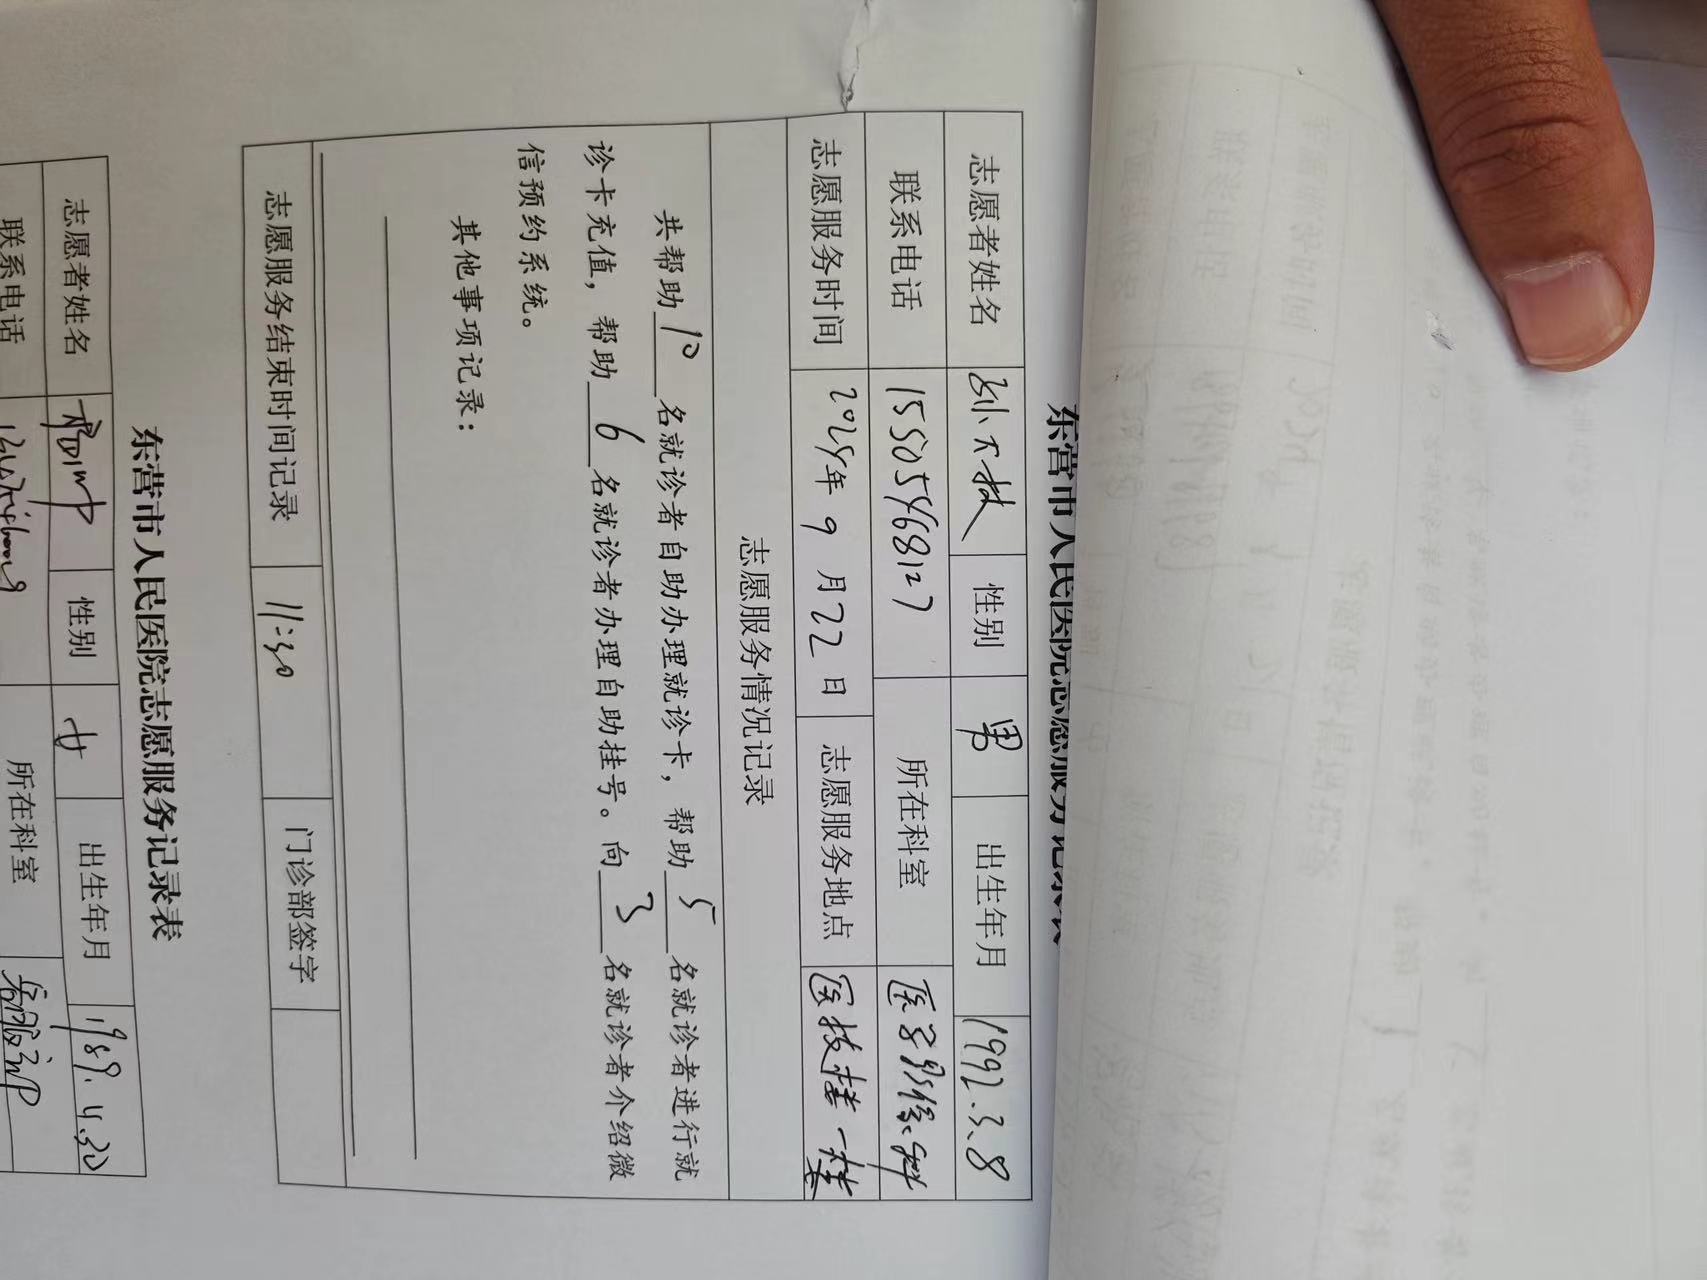 东营市人民医院志愿服务记录表
志愿者姓名 性别 男 出生年月 1992.3.8
联系电话 15505468127 所在科室 医学影像科
志愿服务时间 2025年 9 月 22 日 志愿服务地点 医技楼一楼
志愿服务情况记录
共帮助 10 名就诊者自助办理就诊卡，帮助 5 名就诊者进行就
诊卡充值，帮助 6 名就诊者办理自助挂号。向 3 名就诊者介绍微
信预约系统。
其他事项记录：
志愿服务结束时间记录 11:30 门诊部签字
东营市人民医院志愿服务记录表
志愿者姓名 性别 女 出生年月 1989.4.30
联系电话 所在科室